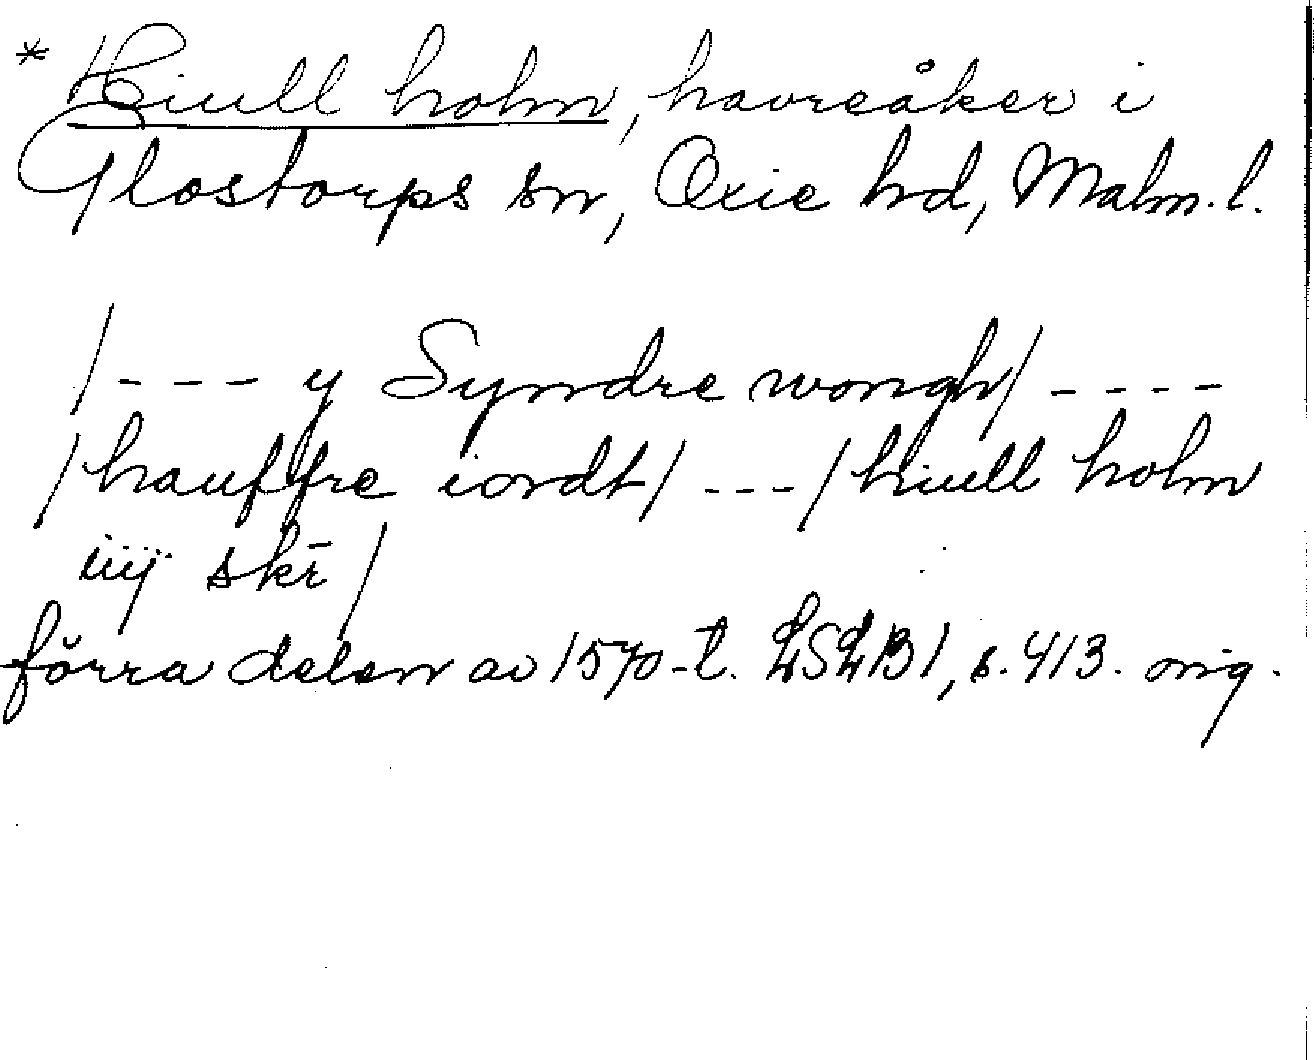 * Hiull holm, havreåker i
Glostorps sn, Oxie hd, Malm. l.
/--- y Syndre wongh/ ----
/hauffre iordt/ ---/hiull holm
iiij skr̄/
förra delen av 1570-t. LSLB1, s. 413. orig.